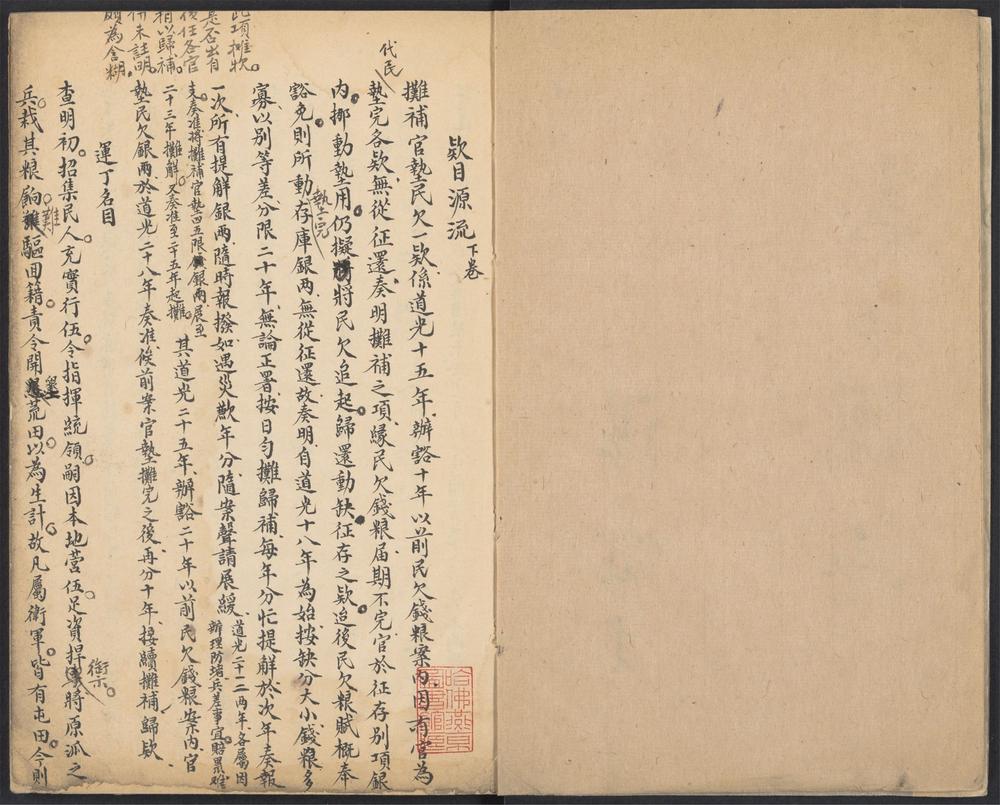 欵目源流 下卷
攤補官墊民欠一欵係道光十五年辦豁十年以前民欠錢粮案內因有官為
代民
墊完各欵無從征還奏明攤補之項緣民欠錢粮届期不完官於征存別項銀
內挪動墊用仍擬將民欠追起歸還動缺征存之欵迨後民欠粮賦概奉
豁免則所動存庫銀兩無從征還故奏明自道光十八年為始按缺分大小錢粮多
墊完
寡以別等差分限二十年無論正署按日勻攤歸補每年分忙提解於次年奏報
一次所有提解銀兩隨時報撥如遇災歉年分隨案聲請展緩
道光二十一二兩年各屬因
辦理防堵兵差事宜賠累難
支奏准將攤補官墊四五限銀兩展至
二十三年攤解又奏准至二十五年起攤
其道光二十五年辦豁二十年以前民欠錢粮案內官
墊民欠銀兩於道光二十八年奏准俟前案官墊攤完之後再分十年接續攤補歸欵
此項攤欵
是否出自
後任各官
捐以歸補
併未註明
頗為含糊
運丁名目
查明初招集民人充實行伍令指揮統領嗣因本地營伍足資捍衛將原派之
兵裁其粮餉驅回籍責令開墾荒田以為生計故凡屬衛軍皆有屯田今則